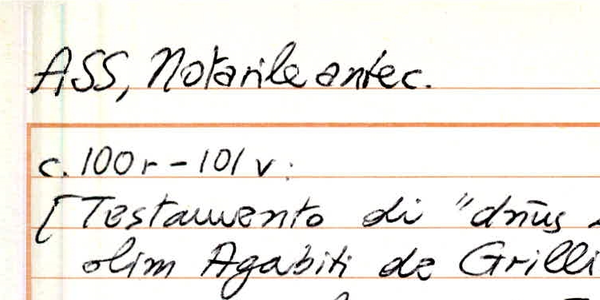 ASS, Notarile antec.
c. 100r - 101v:
[Testamento di "dn̄us
olim Agabiti de Grilli